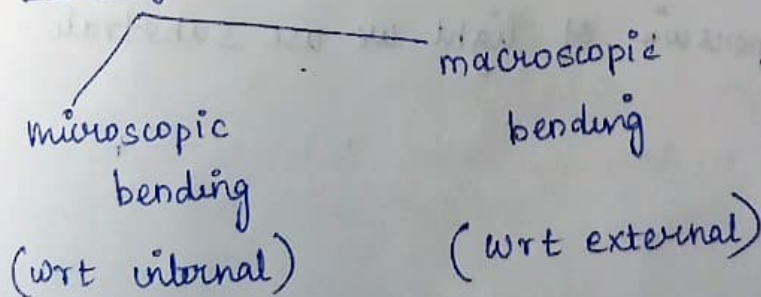 macroscopic
bending
(wrt external)
microscopic
bending
(wrt internal)